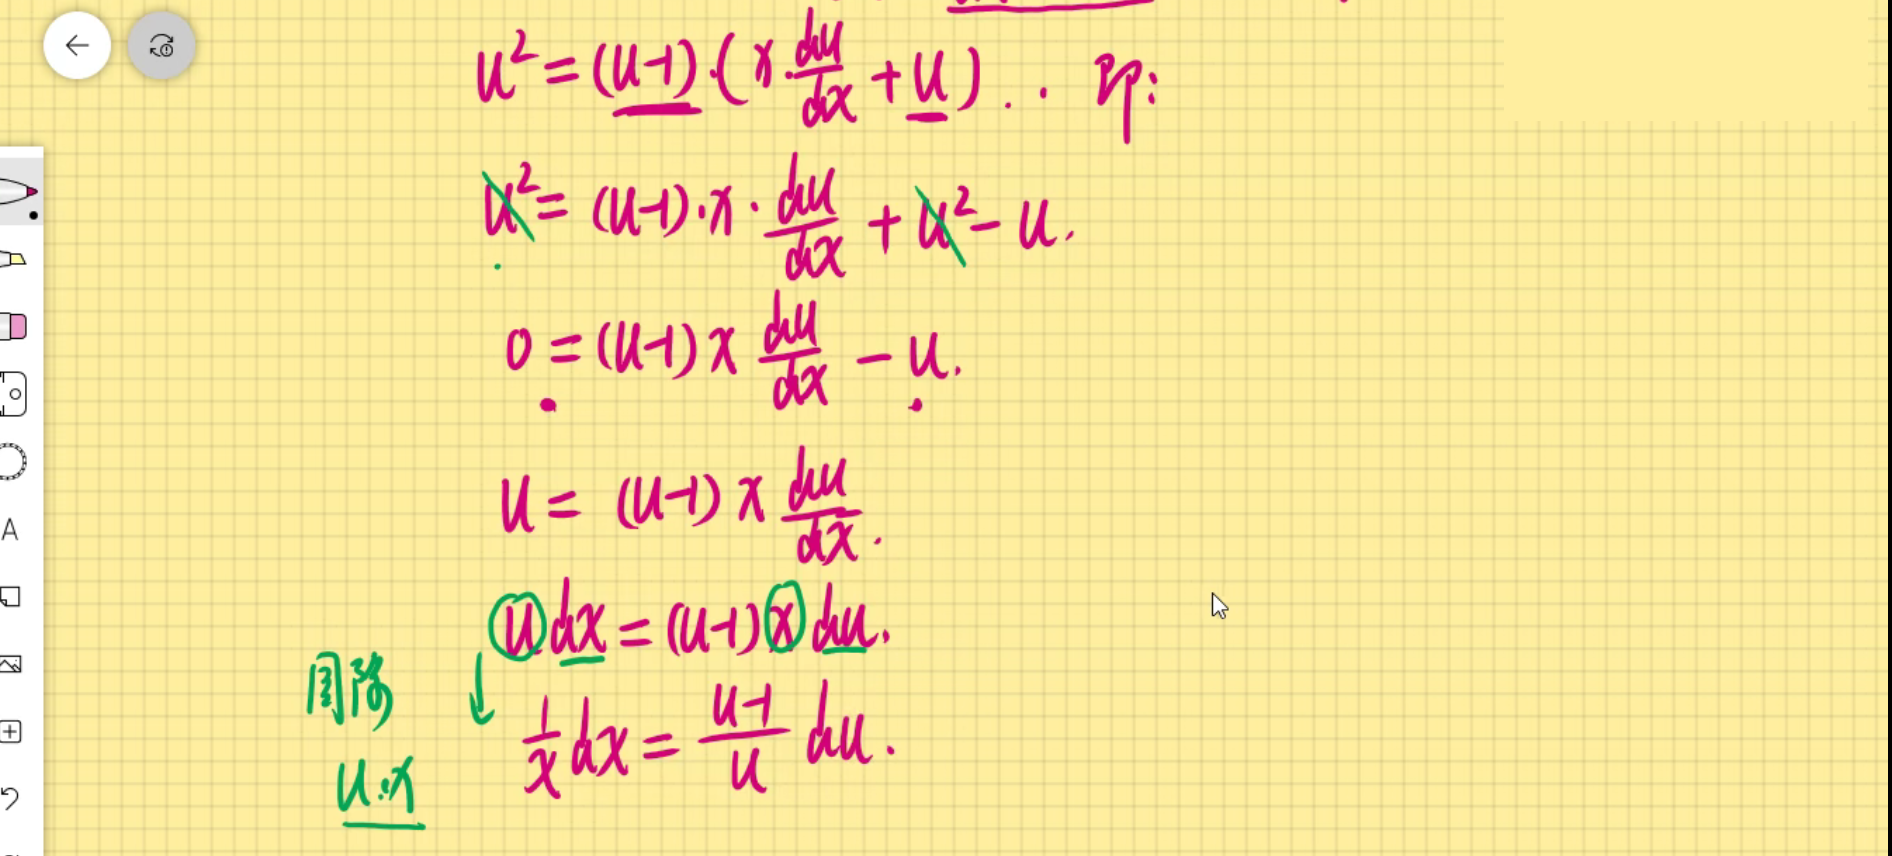 u² = (u-1)·(x·du/dx + u)．． 即:
u² = (u-1)·x·du/dx + u² - u.
0 = (u-1)x du/dx - u.
u = (u-1)x du/dx.
u dx = (u-1)x du.
同除
1/x dx = u-1/u du.
u·x
A